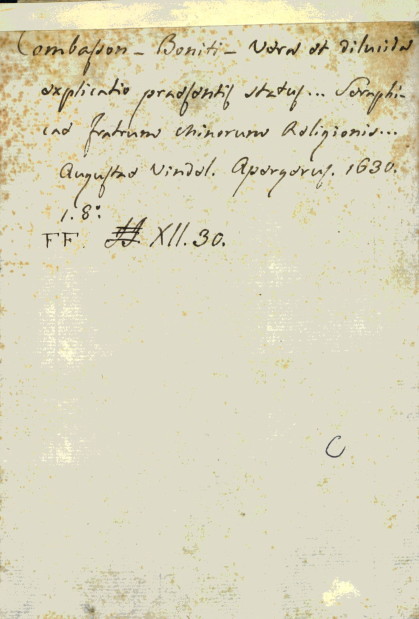 Combasson - Boniti - Vera et dilucida
explicatio praesentis status... Seraphi-
cae fratrum minorum Religionis...
Augustae Vindel. Apergerus. 1630.
1. 8°
FF. XII. 30.
C